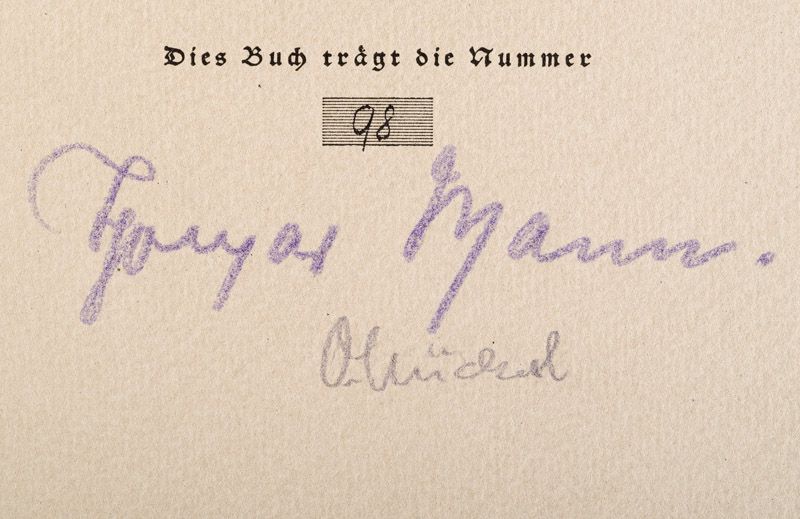 Dies Buch trägt die Nummer
98
Thomas Mann.
O. Nückel